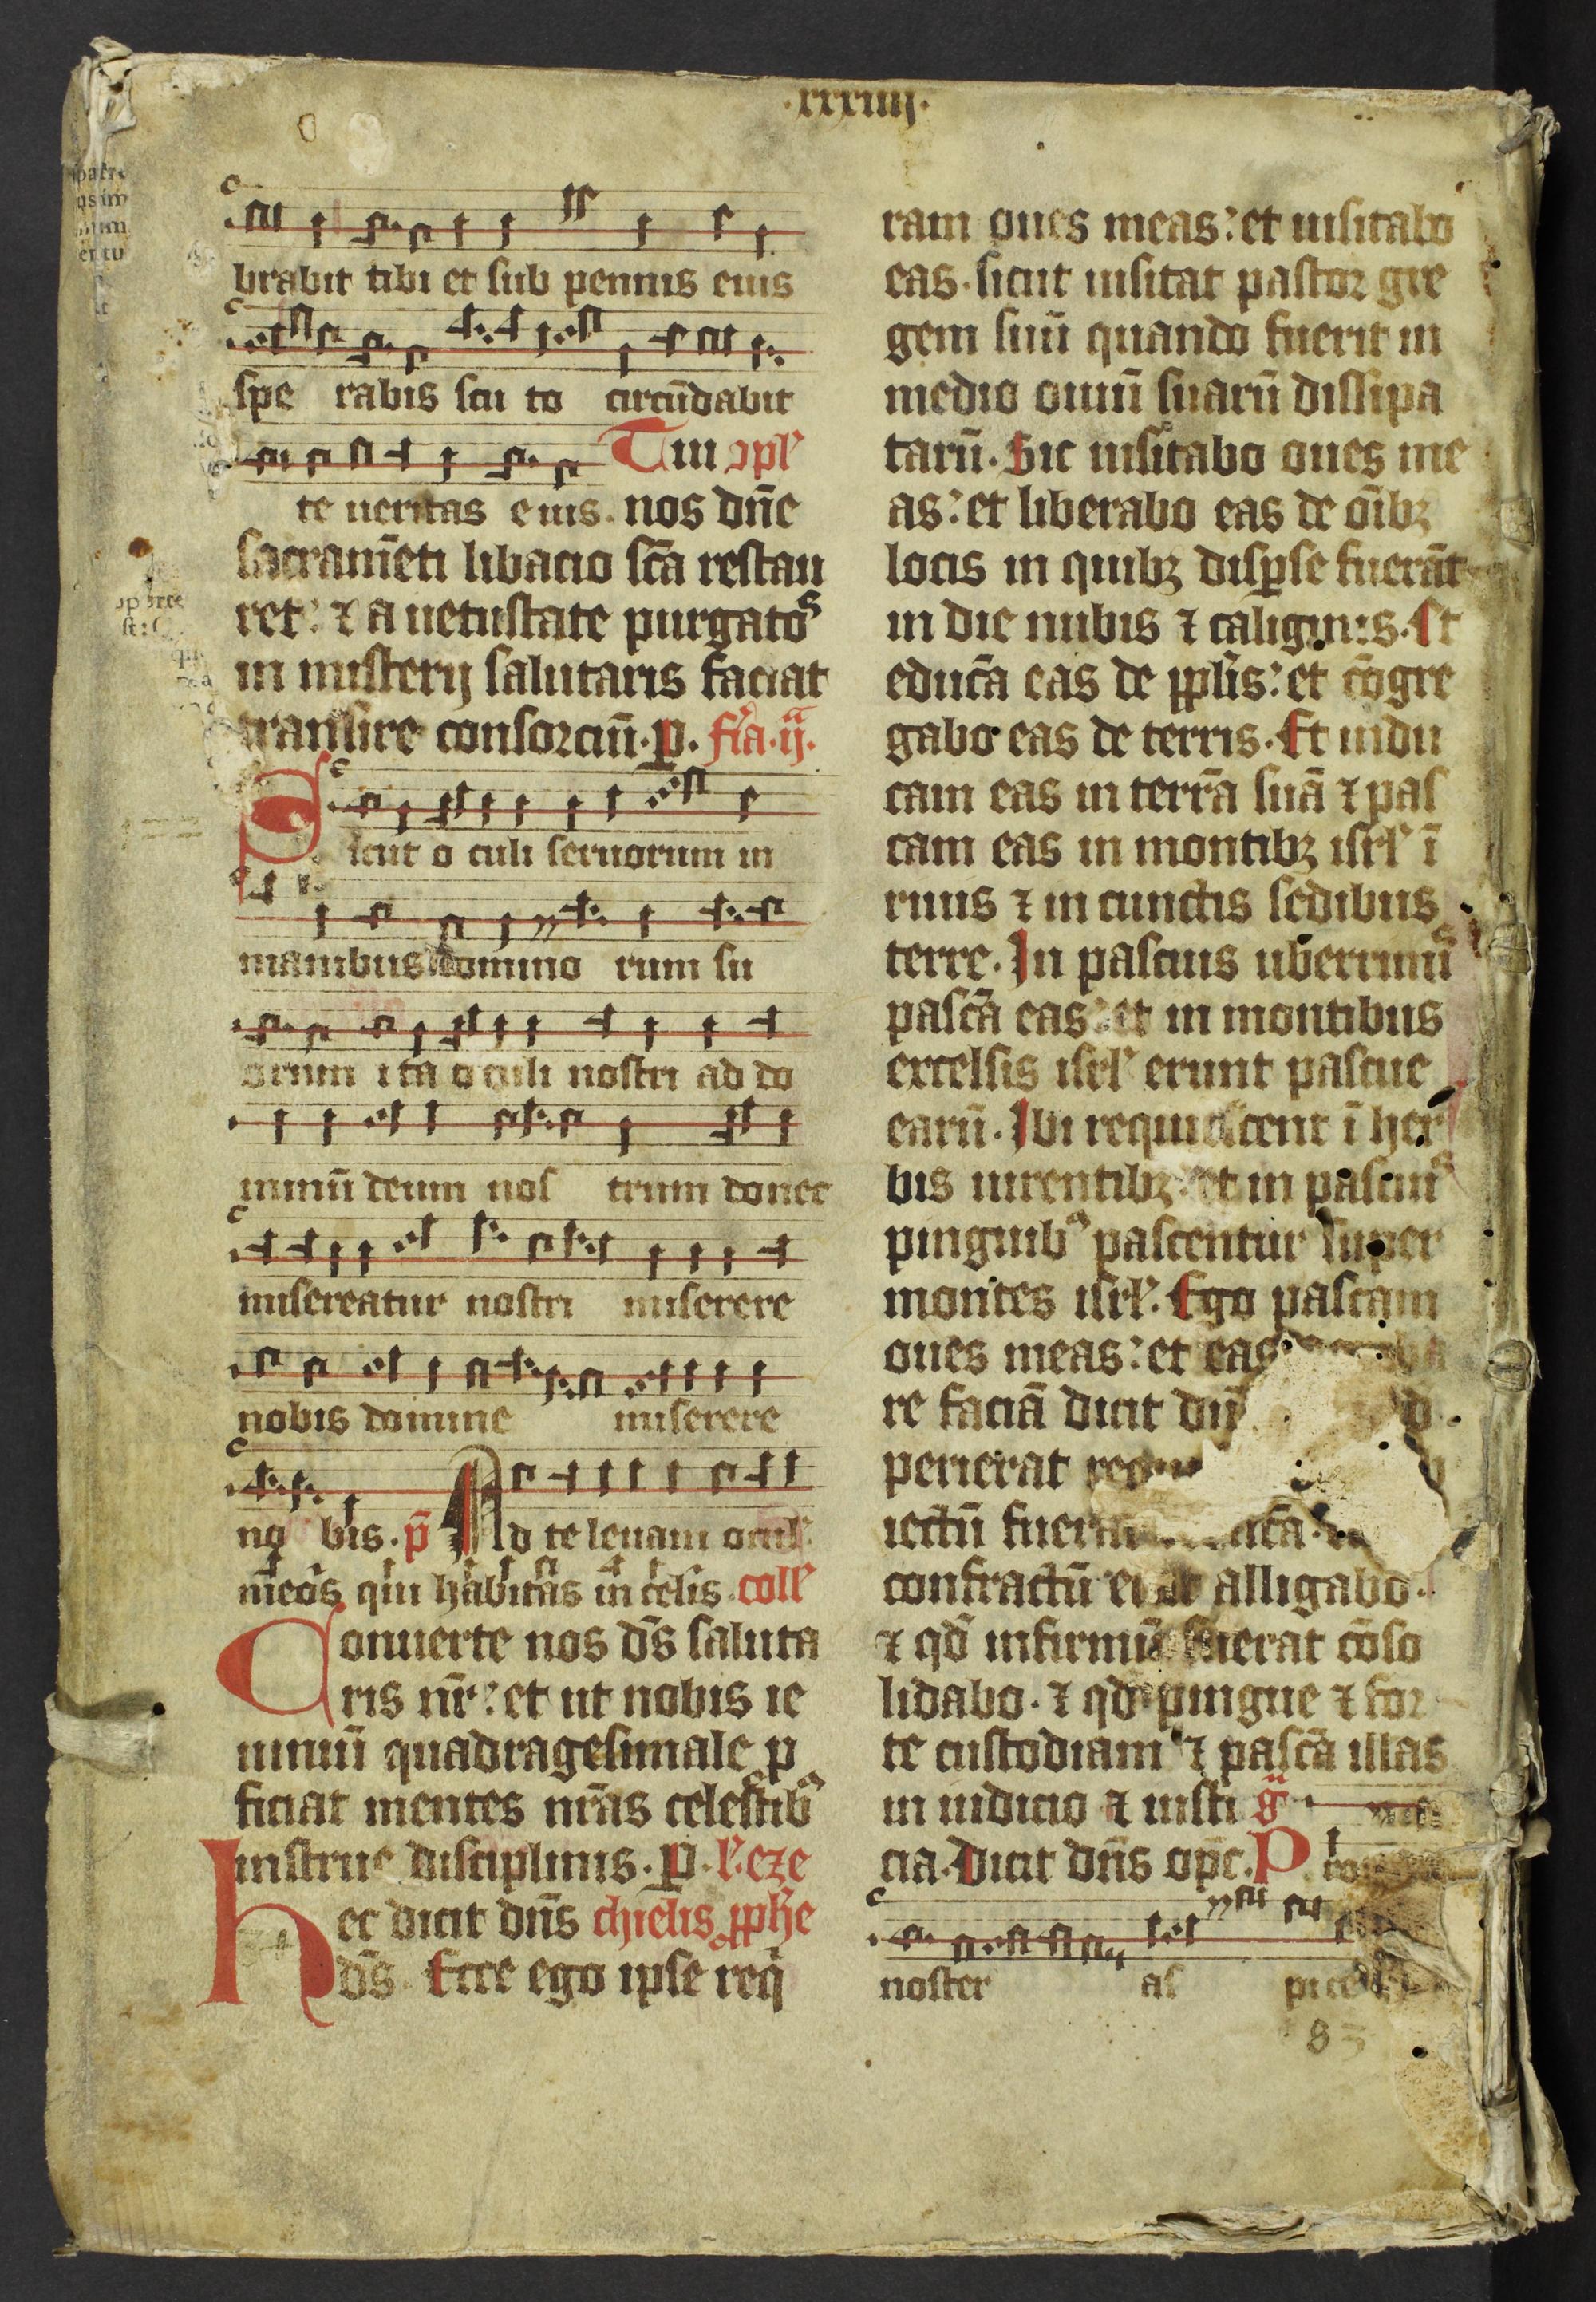 ·xxxiiij·
brabit tibi et sub pennis eius
spe rabis scu to circūdabit
Tui ɔpl'
te ueritas eius. nos dn̄e
sacramēti libacio scā restau
ret: ⁊ a uetustate purgatos
in misterij salutaris faciat
transire consorciū. p. fr̄a .ij.
Sicut o culi seruorum in
manibus domino rum su
orum ita oculi nostri ad do
minū deum nos trum donec
misereatur nostri miserere
nobis domine miserere
no bis. p̄ Ad te leuaui ocul'
meos qui habitas in celis. coll'
Conuerte nos ds̄ saluta
ris nr̄: et ut nobis ie
iuniū quadragesimale p
ficiat mentes nr̄as celestib9
instrue disciplinis. p. l'. eze
hec dicit dn̄s chielis ꝓph̄e
ds̄. Ecce ego ipse req̄
ram oues meas: et uisitabo
eas. sicut uisitat pastor gre
gem suū quando fuerit in
medio ouiū suarū dissipa
tarū. Sic uisitabo oues me
as: et liberabo eas de oīb;
locis in quib; disꝑse fuerāt
in die nubis ⁊ caliginis. Et
educā eas de ꝓpl̄is: et cōgre
gabo eas de terris. Et indu
cam eas in terrā suā ⁊ pas
cam eas in montib; isrl' ī
riuis ⁊ in cunctis sedibus
terre. In pascuis uberrimis
pascā eas: et in montibus
excelsis isrl' erunt pascue
earū. Ibi requiescent ī her
bis uirentib; et in pascuis
pinguib9 pascentur super
montes isrl'. Ego pascam
oues meas: et eas
re faciā dicit dn̄s
perierat
iectū
confractū alligabo.
⁊ qd̄ infirmū fuerat cōso
lidabo. ⁊ qd̄ pingue ⁊ for
te custodiam ⁊ pascā illas
in iudicio ⁊ iusti g̃
cia. Dicit dn̄s op̄c. P
noster as pice
83